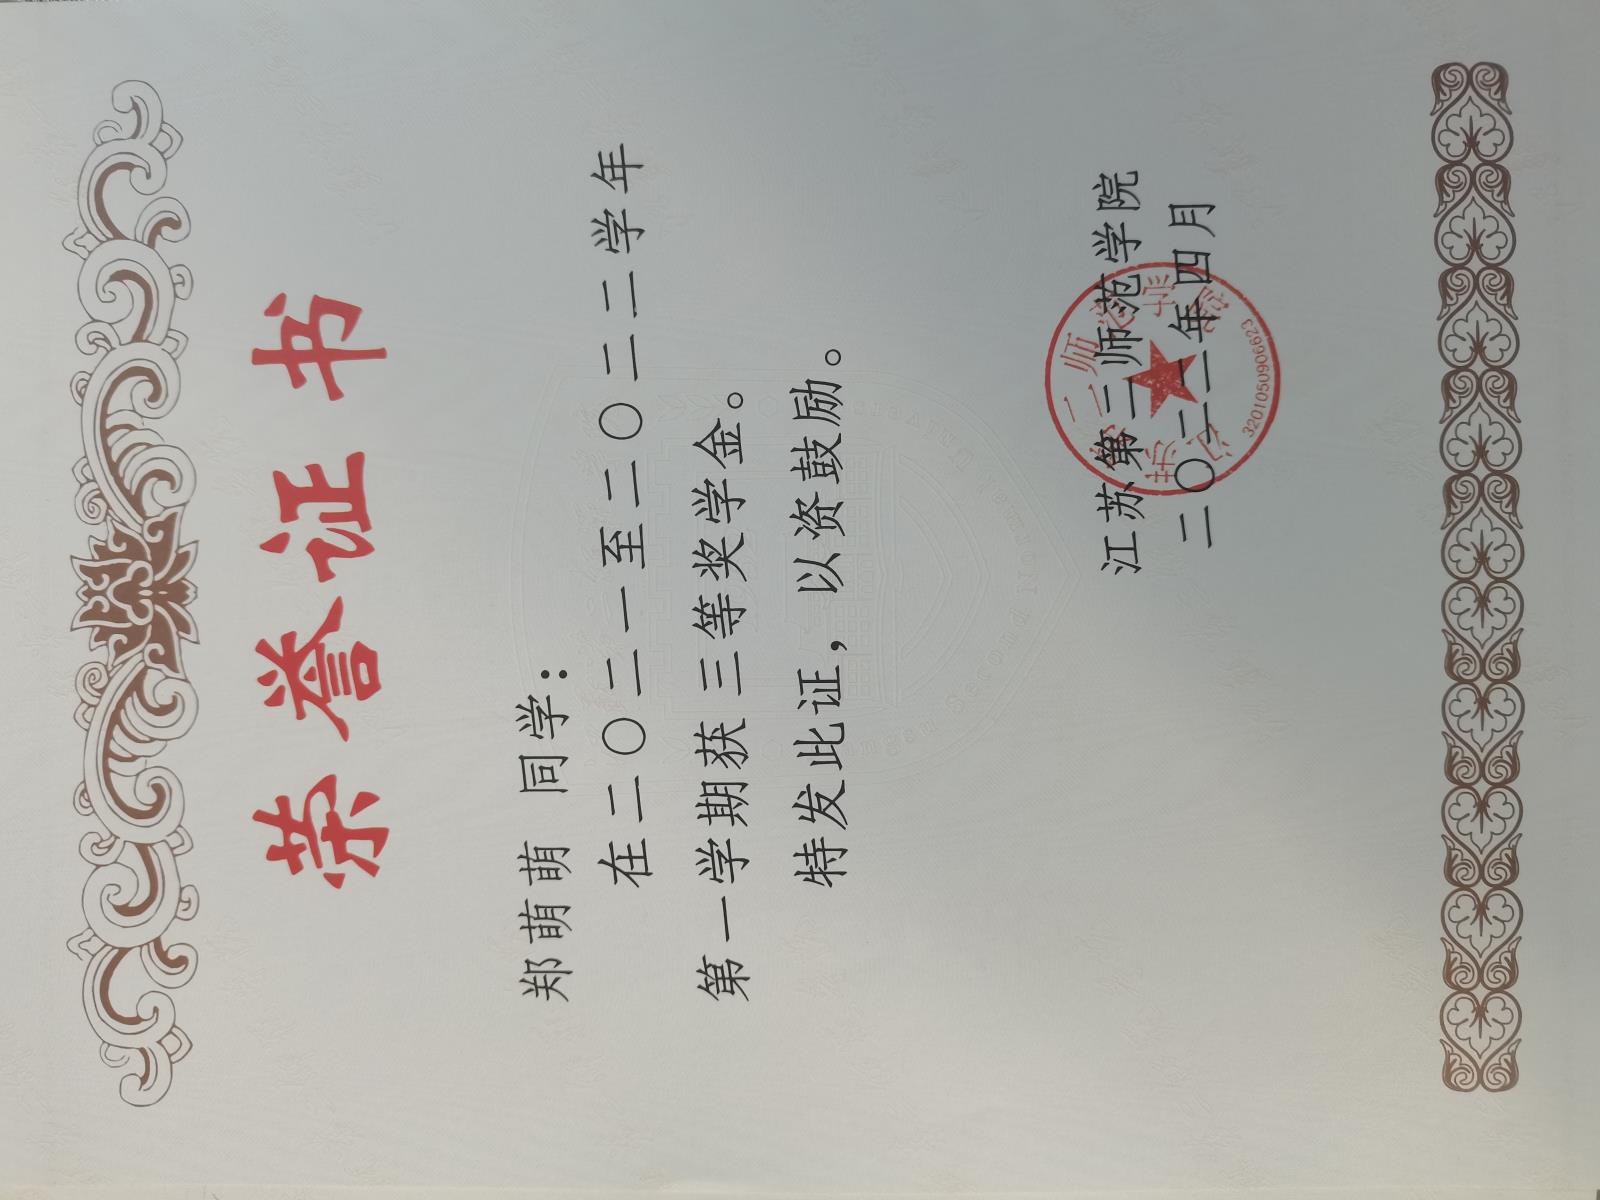 荣誉证书
郑萌萌 同学：
在二〇二一至二〇二二学年
第一学期获三等奖学金。
特发此证，以资鼓励。
江苏第二师范学院
二〇二二年四月
江苏第二师范学院
3201050906623
Jiangsu Second Normal University